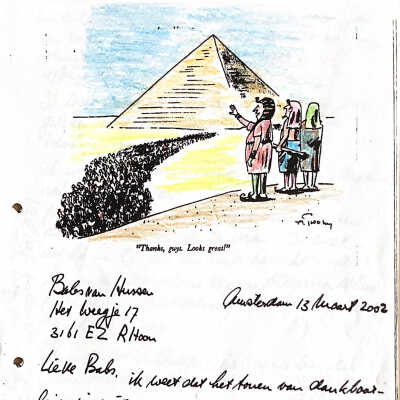 "Thanks, guys. Looks great!"
Babs van
Het weegje 17
Amsterdam 13 maart 2002
3161 EZ RHoon
Lieve Babs,
ik weet dat het tonen van dankbaar-